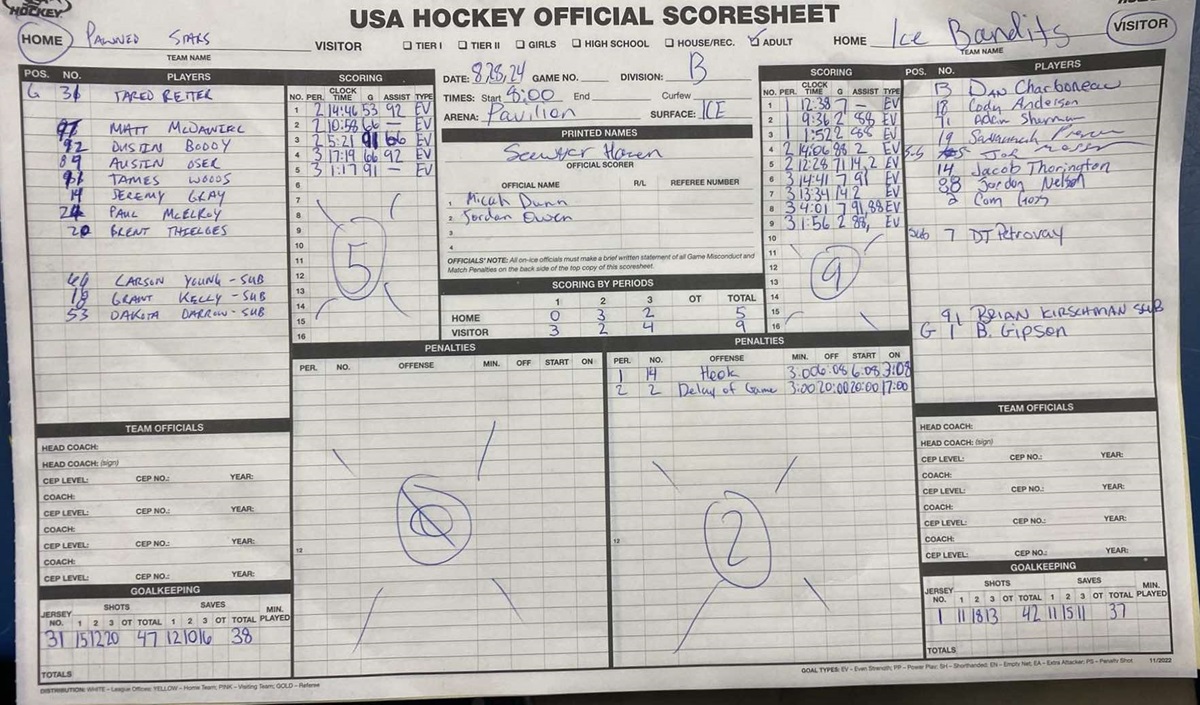 HOCKEY
USA HOCKEY OFFICIAL SCORESHEET
HOME Pawned Stars VISITOR
TEAM NAME
☐ TIER I ☐ TIER II ☐ GIRLS ☐ HIGH SCHOOL ☐ HOUSE/REC. ☑ ADULT
HOME Ice Bandits VISITOR
TEAM NAME
POS. NO. PLAYERS
G 31 JARED REITER
MATT McDANIEL
92 DUSTIN BODDY
89 AUSTIN OSER
JAMES WOODS
14 JEREMY GRAY
24 PAUL McELROY
20 BRENT THIELGES
CARSON YOUNG - SUB
18 GRANT KELLY - SUB
53 DAKOTA DARROW - SUB
SCORING
NO. PER. CLOCK TIME G ASSIST TYPE
1 2 14:46 53 92 EV
2 2 10:58 66 — EV
3 2 5:21 91 66 EV
4 3 17:19 66 92 EV
5 3 1:17 91 — EV
6
7
8
9
10
11
12
13
14
15
16
5
DATE: 8.28.24 GAME NO. DIVISION: B
TIMES: Start 8:00 End Curfew
ARENA: Pavilion SURFACE: ICE
PRINTED NAMES
OFFICIAL SCORER
OFFICIAL NAME R/L REFEREE NUMBER
1 Micah Dunn
2 Jordan Owen
3
4
OFFICIALS' NOTE: All on-ice officials must make a brief written statement of all Game Misconduct and
Match Penalties on the back side of the top copy of this scoresheet.
SCORING BY PERIODS
1 2 3 OT TOTAL
HOME 0 3 2 5
VISITOR 3 2 4 9
SCORING
NO. PER. CLOCK TIME G ASSIST TYPE
1 1 12:38 7 — EV
2 1 9:36 2 88 EV
3 1 1:52 2 88 EV
4 2 14:06 88 2 EV
5 2 12:28 71 14,2 EV
6 3 14:41 7 91 EV
7 3 13:34 14 2 EV
8 3 4:01 7 91,88 EV
9 3 1:56 2 88, EV
10
11
12
13
14
15
16
9
POS. NO. PLAYERS
13 Dan Charboneau
18 Cody Anderson
71 Adam Sherman
19 Savannah
14 Jace Thorington
88 Jordon Nelson
2 Cam
Sub 7 DJ Petrovay
91 BRIAN KIRSCHMAN SUB
G 1 B. Gipson
PENALTIES
PER. NO. OFFENSE MIN. OFF START ON
12
0
PENALTIES
PER. NO. OFFENSE MIN. OFF START ON
1 14 Hook 3:00 6:08 6:08 3:08
2 2 Delay of Game 3:00 20:00 20:00 17:00
12
2
TEAM OFFICIALS
HEAD COACH:
HEAD COACH: (sign)
CEP LEVEL: CEP NO.: YEAR:
COACH:
CEP LEVEL: CEP NO.: YEAR:
COACH:
CEP LEVEL: CEP NO.: YEAR:
COACH:
CEP LEVEL: CEP NO.: YEAR:
GOALKEEPING
JERSEY NO. SHOTS SAVES MIN. PLAYED
1 2 3 OT TOTAL 1 2 3 OT TOTAL
31 15 12 20 47 12 10 16 38
TOTALS
TEAM OFFICIALS
HEAD COACH:
HEAD COACH: (sign)
CEP LEVEL: CEP NO.: YEAR:
COACH:
CEP LEVEL: CEP NO.: YEAR:
COACH:
CEP LEVEL: CEP NO.: YEAR:
COACH:
CEP LEVEL: CEP NO.: YEAR:
GOALKEEPING
JERSEY NO. SHOTS SAVES MIN. PLAYED
1 2 3 OT TOTAL 1 2 3 OT TOTAL
1 11 18 13 42 11 15 11 37
TOTALS
DISTRIBUTION: WHITE – League Offices; YELLOW – Home Team; PINK – Visiting Team; GOLD – Referee
GOAL TYPES: EV – Even Strength; PP – Power Play; SH – Shorthanded; EN – Empty Net; EA – Extra Attacker; PS – Penalty Shot 11/2022